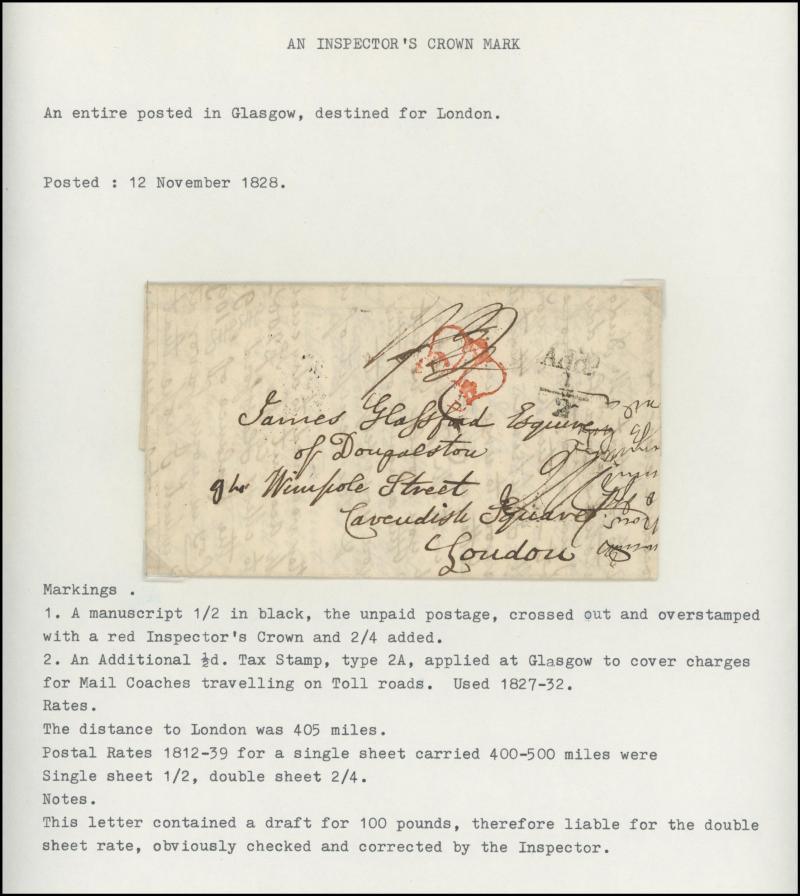 AN INSPECTOR'S CROWN MARK
An entire posted in Glasgow, destined for London.
Posted : 12 November 1828.
Addl
1/2
James Glassford Esquire
of Dougalston
Wimpole Street
Cavendish Square
London
Markings .
1. A manuscript 1/2 in black, the unpaid postage, crossed out and overstamped
with a red Inspector's Crown and 2/4 added.
2. An Additional ½d. Tax Stamp, type 2A, applied at Glasgow to cover charges
for Mail Coaches travelling on Toll roads. Used 1827-32.
Rates.
The distance to London was 405 miles.
Postal Rates 1812-39 for a single sheet carried 400-500 miles were
Single sheet 1/2, double sheet 2/4.
Notes.
This letter contained a draft for 100 pounds, therefore liable for the double
sheet rate, obviously checked and corrected by the Inspector.